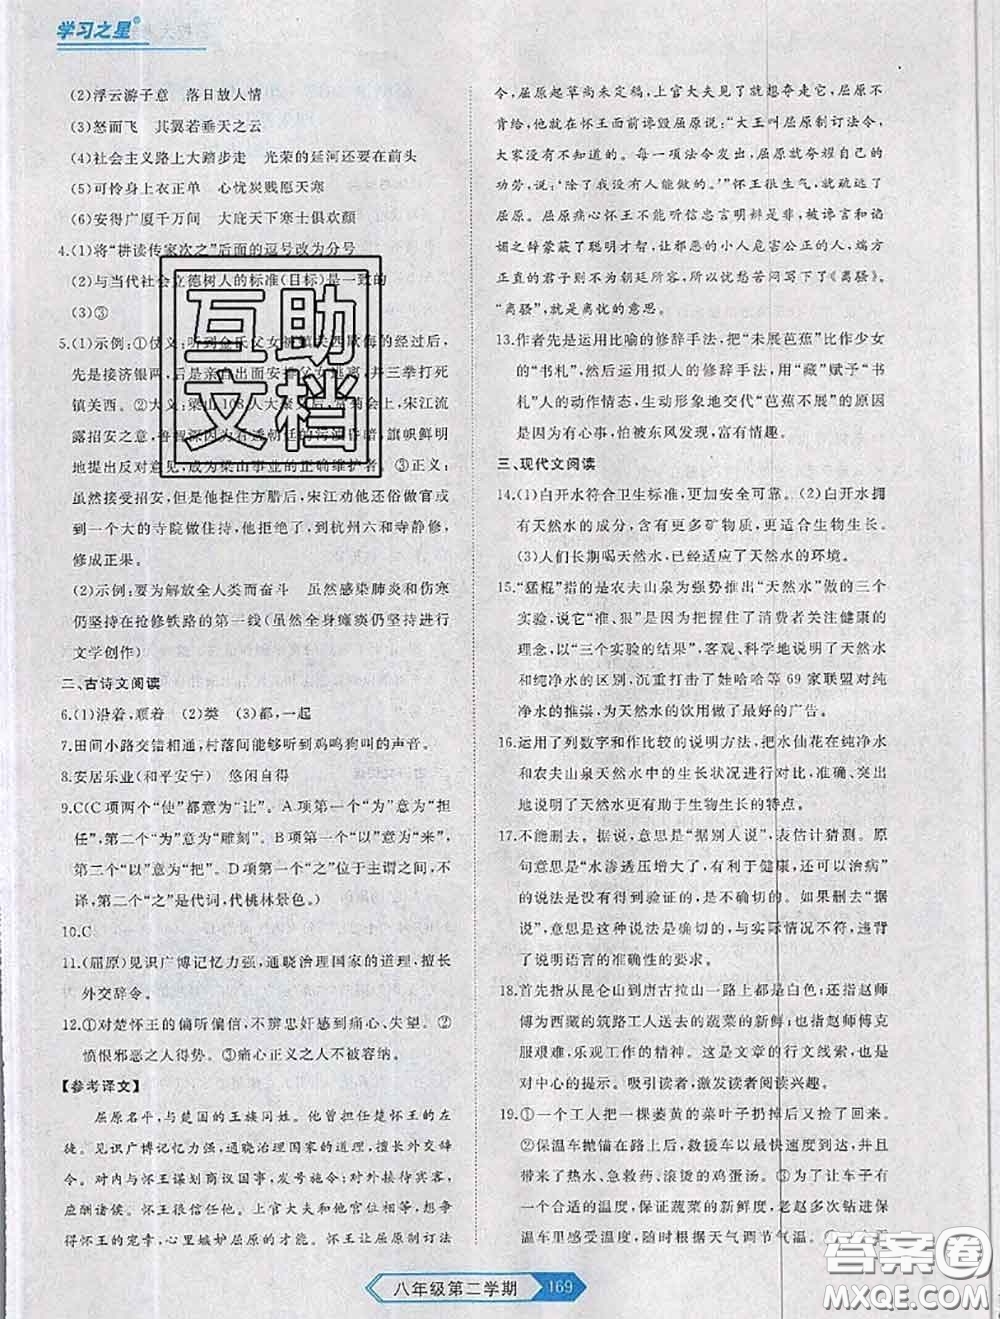 学习之星
(2)浮云游子意　落日故人情
(3)怒而飞　其翼若垂天之云
(4)社会主义路上大踏步走　光荣的延河还要在前头
(5)可怜身上衣正单　心忧炭贱愿天寒
(6)安得广厦千万间　大庇天下寒士俱欢颜
4.(1)将“耕读传家次之”后面的逗号改为分号
(2)与当代社会立德树人的标准(目标)是一致的
(3)③
5.(1)示例：①仗义：听到金氏父女被镇关西欺侮的经过后，
先是接济银两，后是亲自出面安排父女逃离，并三拳打死
镇关西。②大义：梁山108人大聚义后，宋江流
露招安之意，鲁智深因为看透朝廷的污浊昏暗，旗帜鲜明
地提出反对意见，成为梁山事业的正确维护者。③正义：
虽然接受招安，但他捉住方腊后，宋江劝他还俗做官或
到一个大的寺院做住持，他拒绝了，到杭州六和寺静修，
修成正果。
(2)示例：要为解放全人类而奋斗　虽然感染肺炎和伤寒
仍坚持在抢修铁路的第一线(虽然全身瘫痪仍坚持进行
文学创作)
二、古诗文阅读
6.(1)沿着，顺着　(2)类　(3)都，一起
7.田间小路交错相通，村落间能够听到鸡鸣狗叫的声音。
8.安居乐业(和平安宁)　悠闲自得
9.C(C项两个“使”都意为“让”。A项第一个“为”意为“担
任”，第二个“为”意为“雕刻”。B项第一个“以”意为“来”，
第二个“以”意为“把”。D项第一个“之”位于主谓之间，不
译，第二个“之”是代词，代桃林景色。)
10.C
11.(屈原)见识广博记忆力强，通晓治理国家的道理，擅长
外交辞令。
12.①对楚怀王的偏听偏信，不辨忠奸感到痛心、失望。②
愤恨邪恶之人得势。③痛心正义之人不被容纳。
【参考译文】
屈原名平，与楚国的王族同姓。他曾担任楚怀王的左
徒。见识广博记忆力强，通晓治理国家的道理，擅长外交辞
令。对内与怀王谋划商议国事，发号施令；对外接待宾客，
应酬诸侯。怀王很信任他。上官大夫和他职位相同，想争
得怀王的宠幸，心里嫉妒屈原的才能。怀王让屈原制订法
令，屈原起草尚未定稿，上官大夫见了就想夺走它，屈原不
肯给，他就在怀王面前谗毁屈原说：“大王叫屈原制订法令，
大家没有不知道的。每一项法令发出，屈原就夸耀自己的
功劳，说：‘除了我没有人能做的。’”怀王很生气，就疏远了
屈原。屈原痛心怀王不能听信忠言明辨是非，被谗言和谄
媚之辞蒙蔽了聪明才智，让邪恶的小人危害公正的人，端方
正直的君子则不为朝廷所容，所以忧愁苦闷写下了《离骚》。
“离骚”，就是离忧的意思。
13.作者先是运用比喻的修辞手法，把“未展芭蕉”比作少女
的“书札”，然后运用拟人的修辞手法，用“藏”赋予“书
札”人的动作情态，生动形象地交代“芭蕉不展”的原因
是因为有心事，怕被东风发现，富有情趣。
三、现代文阅读
14.(1)白开水符合卫生标准，更加安全可靠。(2)白开水拥
有天然水的成分，含有更多矿物质，更适合生物生长。
(3)人们长期喝天然水，已经适应了天然水的环境。
15.“猛棍”指的是农夫山泉为强势推出“天然水”做的三个
实验，说它“准、狠”是因为它把握住了消费者关注健康的
心理，以“三个实验的结果”，客观、科学地说明了天然水
和纯净水的区别，沉重打击了娃哈哈等69家联盟对纯
净水的推崇，为天然水的饮用做了最好的广告。
16.运用了列数字和作比较的说明方法，把水仙花在纯净水
和农夫山泉天然水中的生长状况进行对比，准确、突出
地说明了天然水更有助于生物生长的特点。
17.不能删去。据说，意思是“据别人说”，表估计猜测。原
句意思是“水渗透压增大了，有利于健康，还可以治病”
的说法是没有得到验证的，是不确切的。如果删去“据
说”，意思是这种说法是确切的，与实际情况不符，违背
了说明语言的准确性的要求。
18.首先指从昆仑山到唐古拉山一路上都是白色；还指赵师
傅为西藏的筑路工人送去的蔬菜的新鲜；也指赵师傅克
服艰难，乐观工作的精神。这是文章的行文线索，也是
对中心的提示。吸引读者，激发读者阅读兴趣。
19.①一个工人把一棵萎黄的菜叶子扔掉后又捡了回来。
②保温车抛锚在路上后，救援车以最快速度到达，并且
带了热水、急救药、滚烫的鸡蛋汤。③为了让车子有一
个合适的温度，保证蔬菜的新鲜度，老赵多次钻进保
温车里感受温度，不断地根据天气调节气温。
互助
文档
答案圈
MXQE.COM
八年级第二学期　169